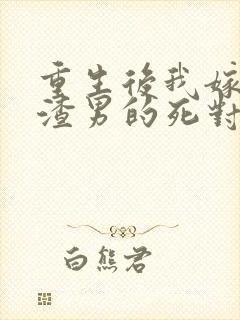 重生後我嫁
渣男的死對
白熊君